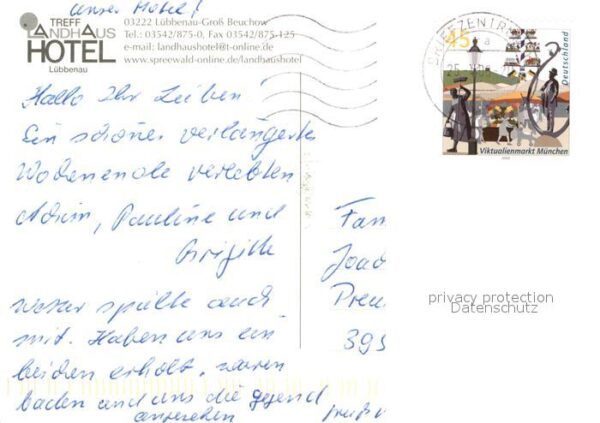 unser Hotel!
TREFF
LANDHAUS
HOTEL
Lübbenau
03222 Lübbenau-Groß Beuchow
Tel.: 03542/875-0, Fax 03542/875-125
e-mail: landhaushotel@t-online.de
www.spreewald-online.de/landhaushotel
BRIEFZENTRUM
45
Deutschland
Viktualienmarkt München
Hallo Ihr Lieben!
Ein schönes verlängertes
Wochenende verlebten
Achim, Pauline und
Brigitte
Wetter spielte auch
mit. Haben uns ein
beiden erholt, waren
baden und uns die Gegend
angesehen
Fam
Joac
Preu
395
privacy protection
Datenschutz